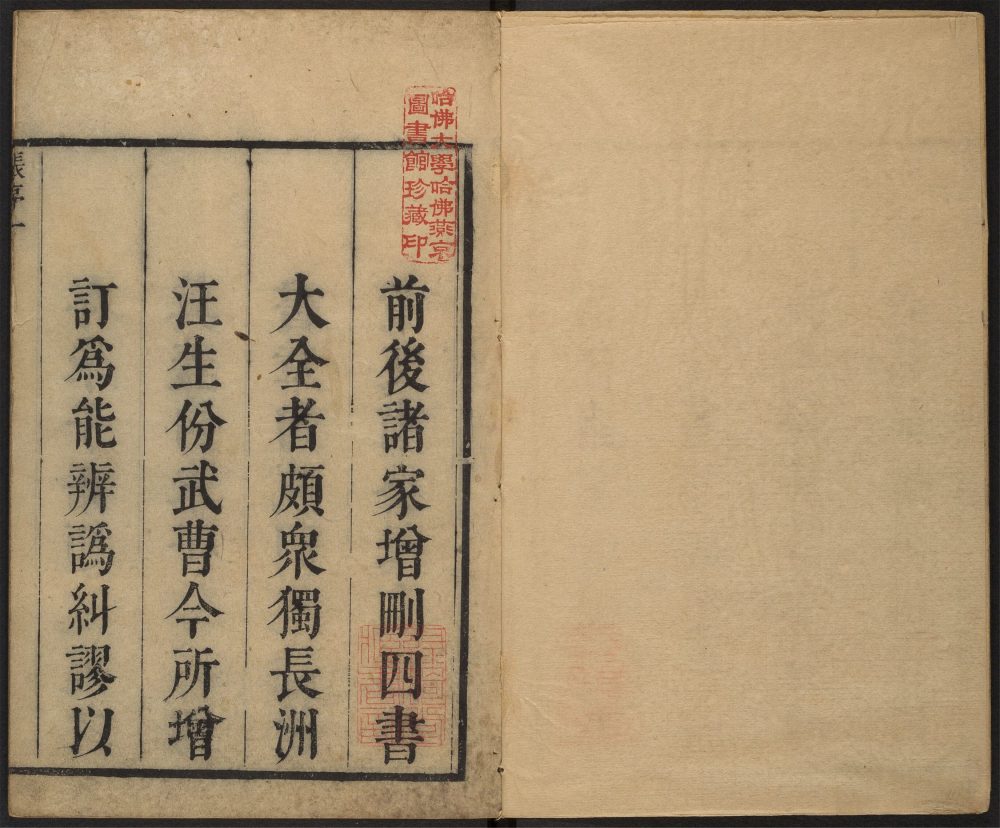 哈佛大學哈佛燕京
圖書館珍藏印
前後諸家增刪四書
大全者頗衆獨長洲
汪生份武曹今所增
訂爲能辨譌糾謬以
張序一